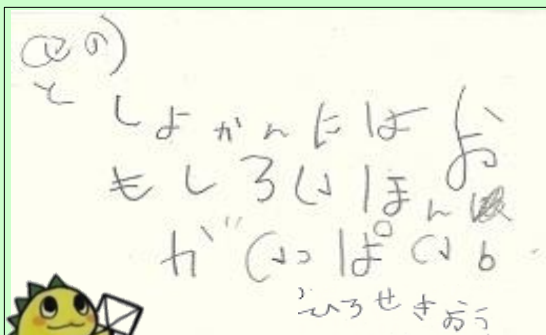 と
しょかんにはお
もしろいほん
がいっぱい。
ひろせきおう